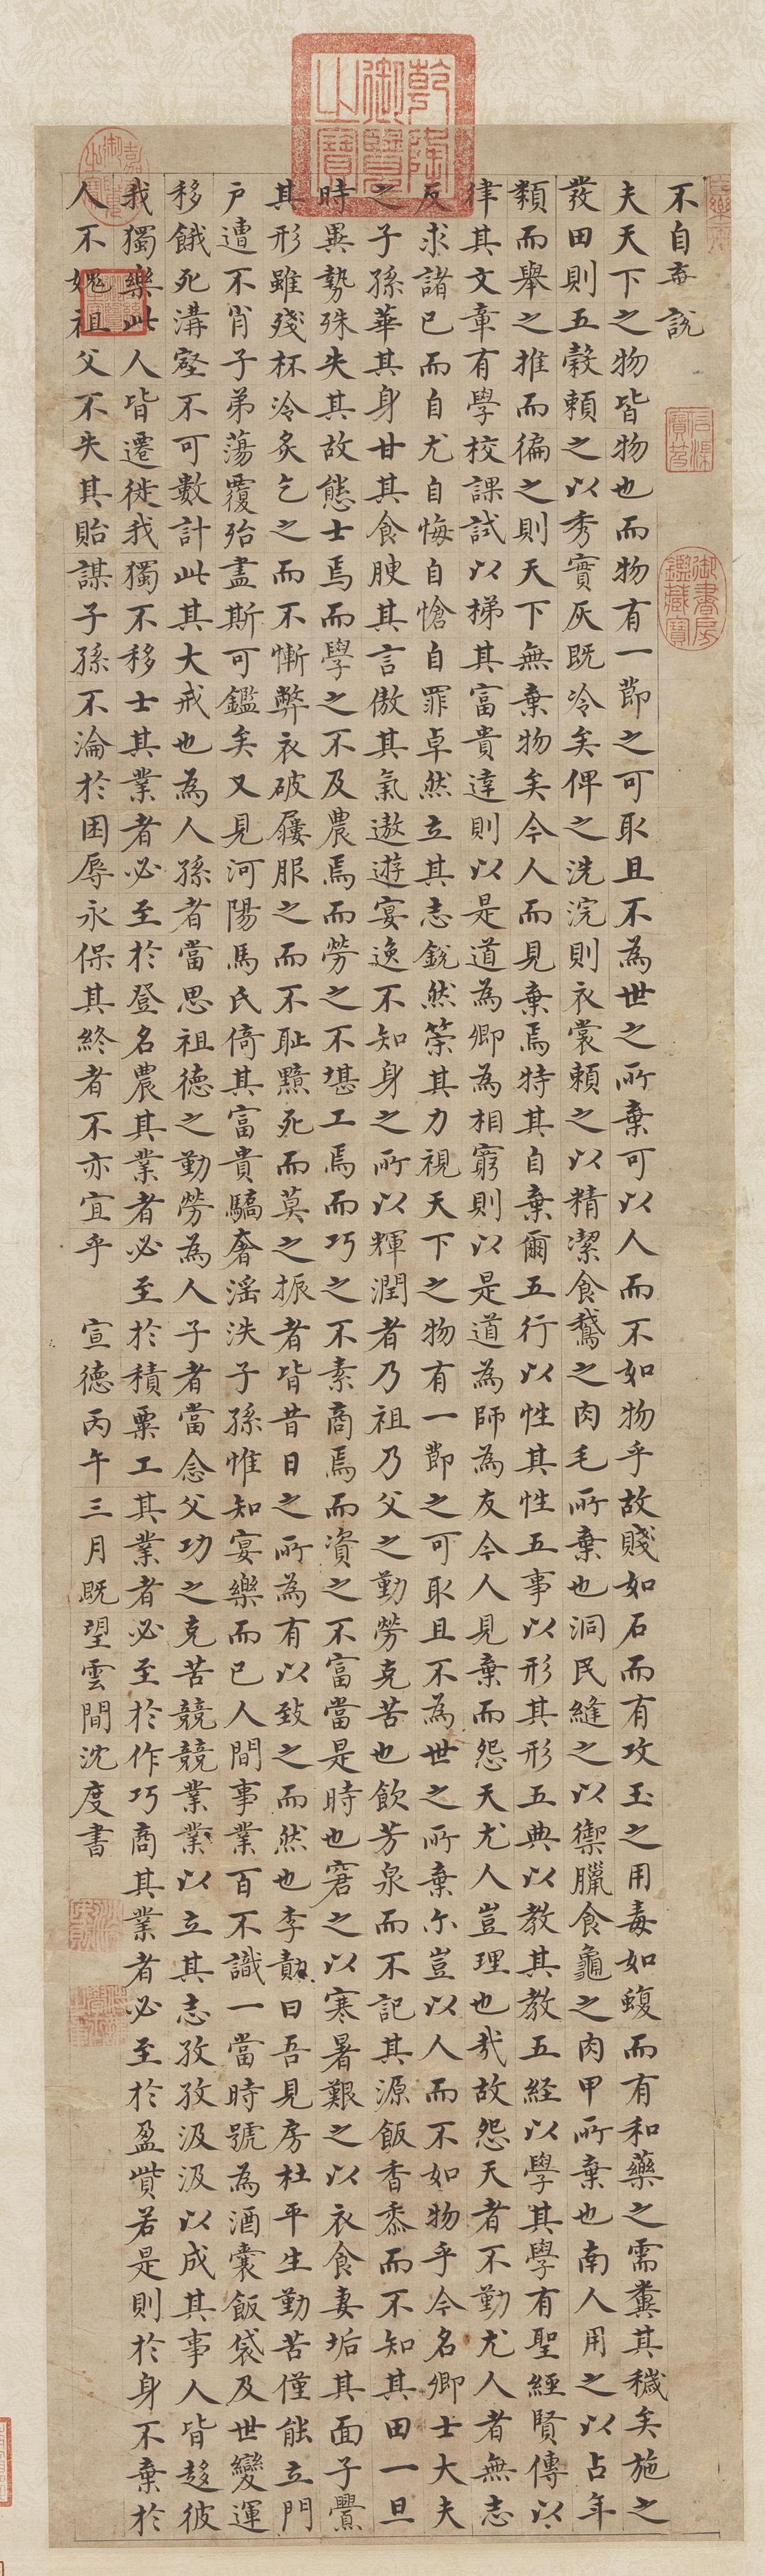 不自棄說
夫天下之物皆物也而物有一節之可取且不為世之所棄可以人而不如物乎故賤如石而有攻玉之用毒如蝮而有和藥之需糞其穢矣施之
發田則五穀賴之以秀實灰既冷矣俾之洗浣則衣裳賴之以精潔食鵞之肉毛所棄也洞民縫之以禦臘食龜之肉甲所棄也南人用之以占年
類而舉之推而徧之則天下無棄物矣今人而見棄焉特其自棄爾五行以性其性五事以形其形五典以教其教五経以學其學有聖經賢傳以
律其文章有學校課試以梯其富貴達則以是道為卿為相窮則以是道為師為友今人見棄而怨天尤人豈理也㢤故怨天者不勤尤人者無志
反求諸已而自尤自悔自愴自罪卓然立其志銳然䇿其力視天下之物有一節之可取且不為世之所棄尒豈以人而不如物乎今名卿士大夫
之子孫華其身甘其食腴其言傲其氣遨遊宴逸不知身之所以輝潤者乃祖乃父之勤勞克苦也飲芳泉而不記其源飯香黍而不知其田一旦
時異勢殊失其故態士焉而學之不及農焉而勞之不堪工焉而巧之不素商焉而資之不富當是時也窘之以寒暑艱之以衣食妻垢其面子釁
其形雖殘杯冷炙乞之而不慚弊衣破屨服之而不耻黯死而莫之振者皆昔日之所為有以致之而然也李勣曰吾見房杜平生勤苦僅能立門
戶遭不肖子弟蕩覆殆盡斯可鑑矣又見河陽馬氏倚其富貴驕奢滛泆子孫惟知宴樂而已人間事業百不識一當時號為酒囊飯袋及世變運
移餓死溝壑不可數計此其大戒也為人孫者當思祖德之勤勞為人子者當念父功之克苦競競業業以立其志孜孜汲汲以成其事人皆趍彼
我獨樂此人皆遷徙我獨不移士其業者必至於登名農其業者必至於積粟工其業者必至於作巧商其業者必至於盈貲若是則於身不棄於
人不媿祖父不失其貽謀子孫不淪於困辱永保其終者不亦宜乎　宣德丙午三月既望雲間沈度書
乾隆御覽之寶
石渠寶笈
御書房鑑藏寶